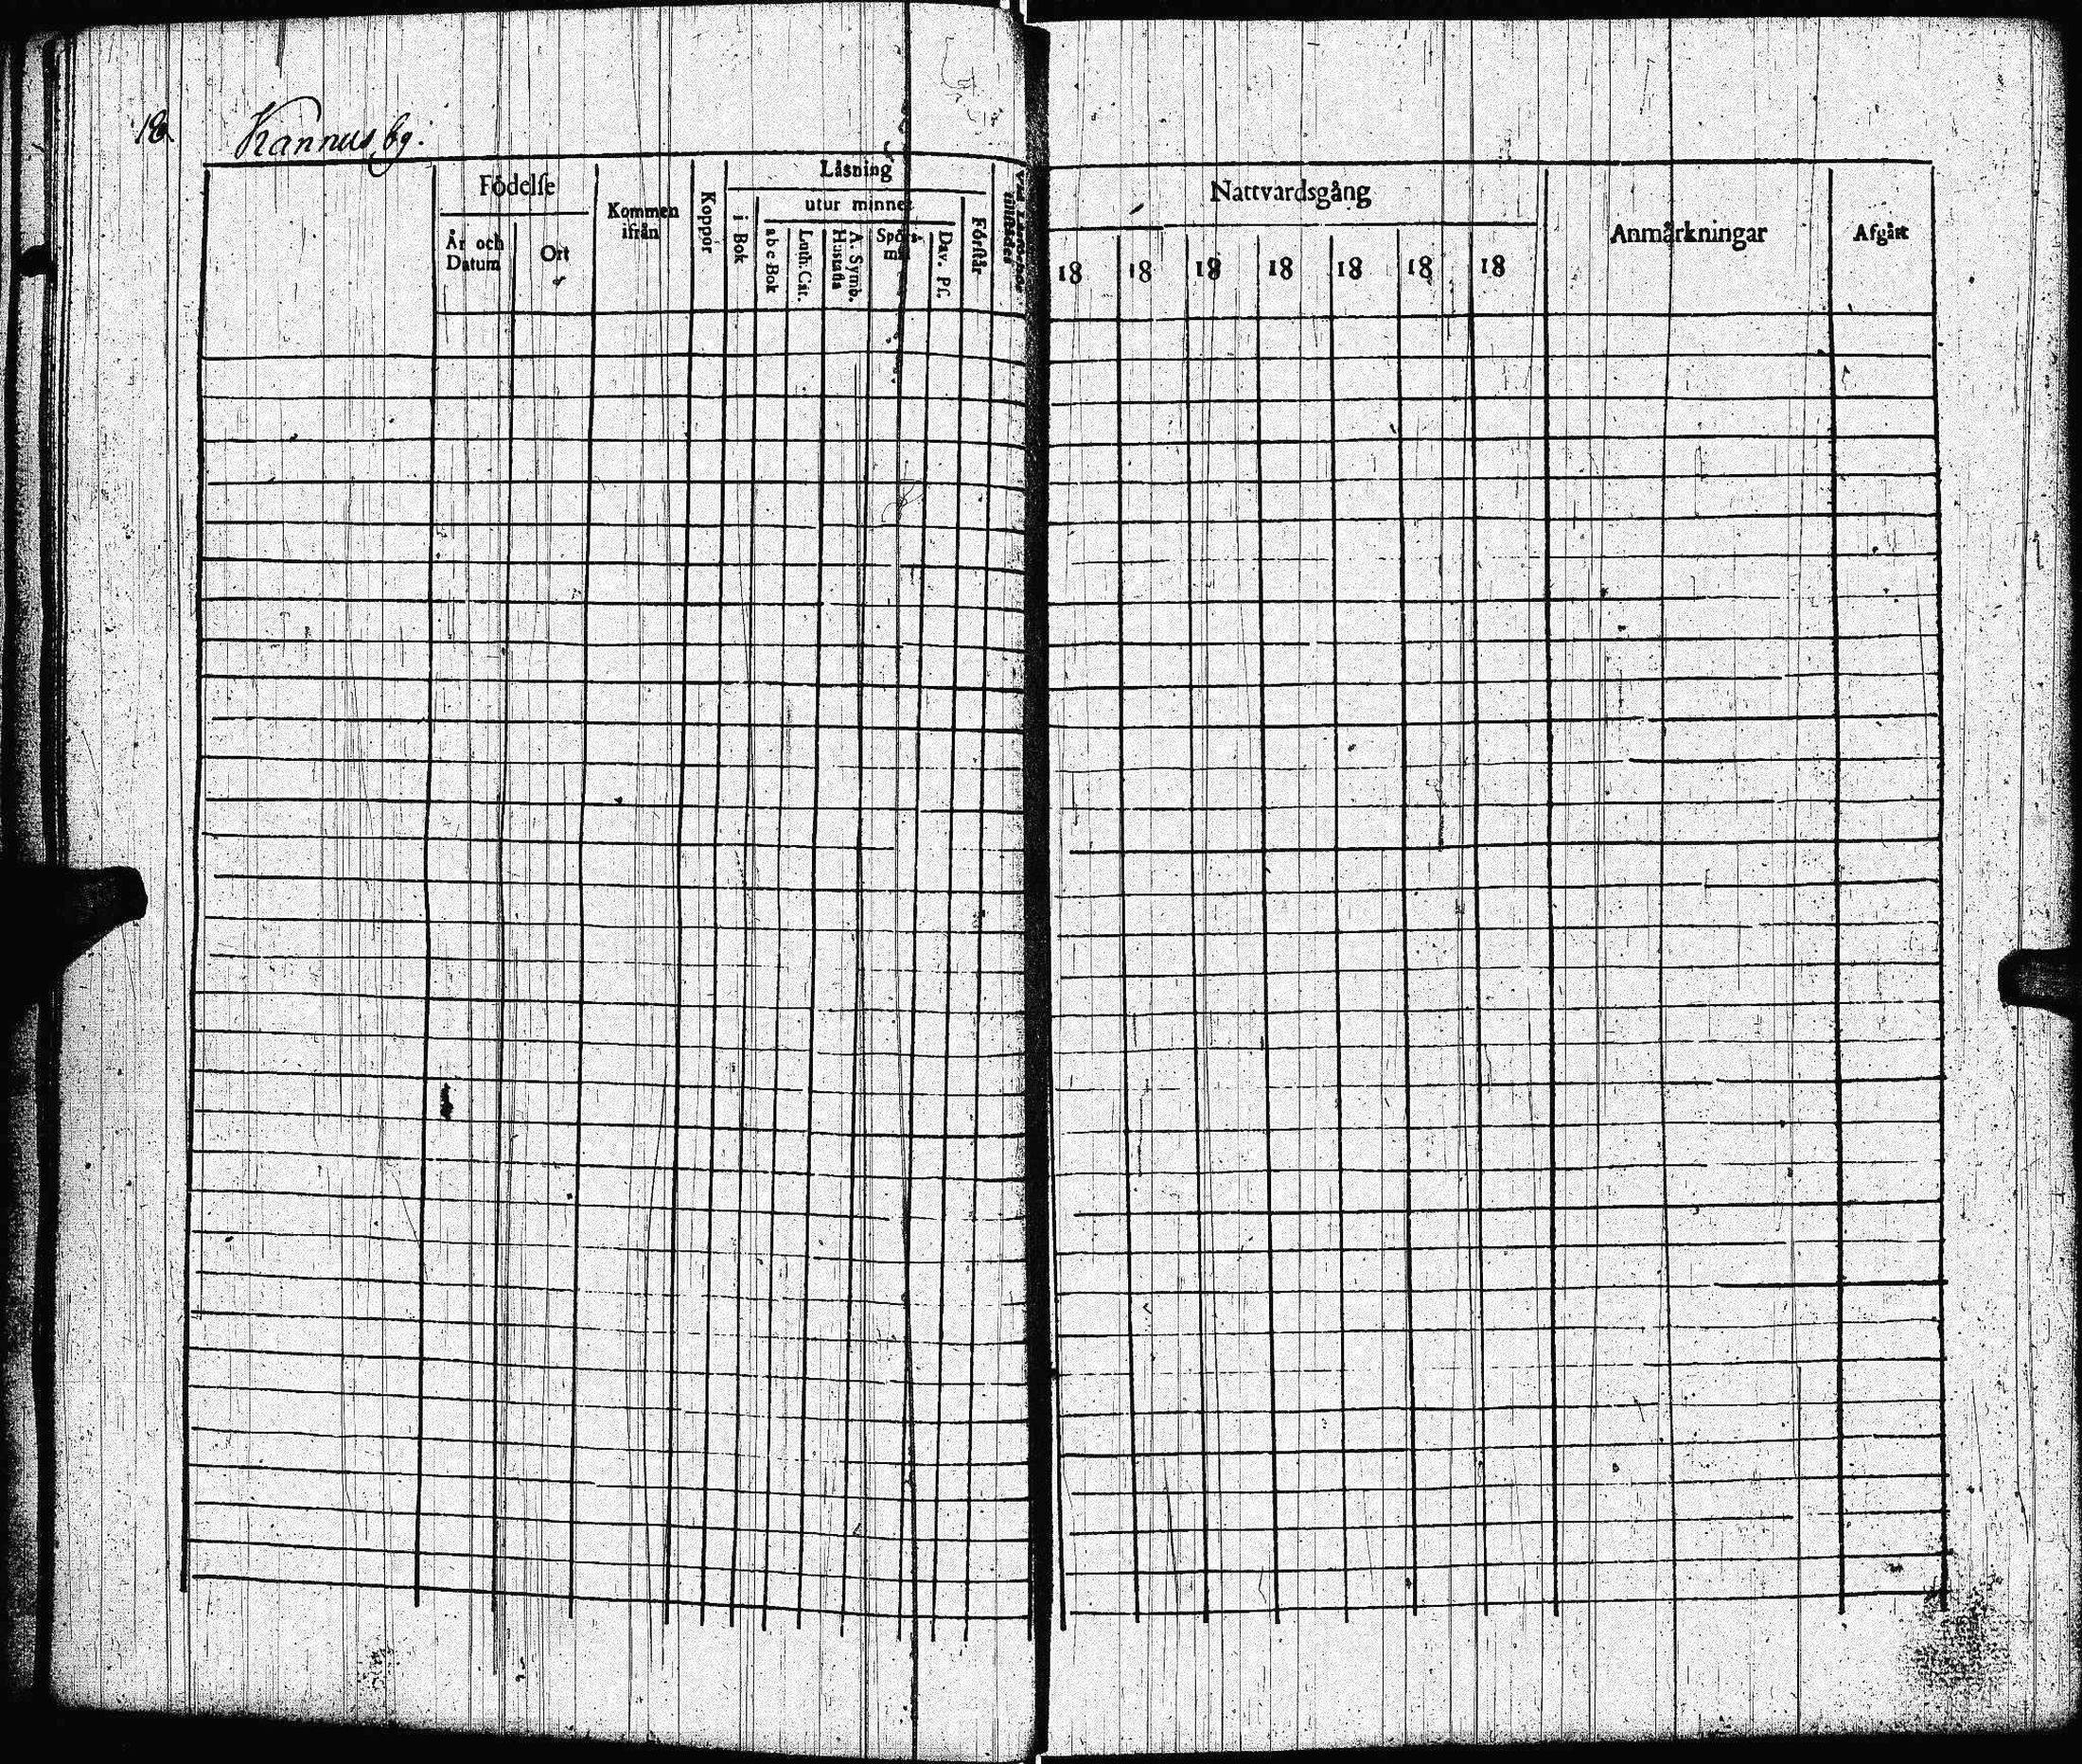 Kannus by.
Födelse
År och Datum
Ort
Kommen ifrån
Koppor
Läsning
i Bok
utur minnet
a b c Bok
Luth. Cat.
A. Symb. Hustafla
Spörs-mål
Dav. Ps.
Förstår
Nattvardsgång
18 18 18 18 18 18 18
Anmärkningar
Afgått